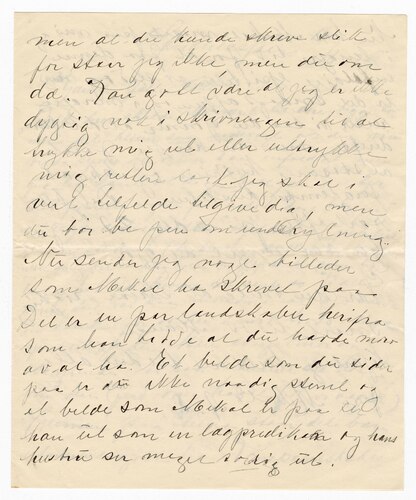 men at du kunde skreve slik
for staar jeg ikke men du om
da. Kan godt være at jeg er ikke
dygtig nok i skrivningen til at
trykke mig ut eller uttrykke
mig rettere sagt jeg skal i
vert tilfelde tilgive dig, men
du bør be pen om undskyldning.
Nu sender jeg nogle billeder
som Mekal ha skrevet paa
Det er en par landskaber herifra
som han trodde at du havde moro
av at ha. Et bilde som du sider
paa er du ikke naadig stemt og
et bilde som Mekal er paa
han ut som en lægpredikant og hans
hustru ser meget sørgelig ut.